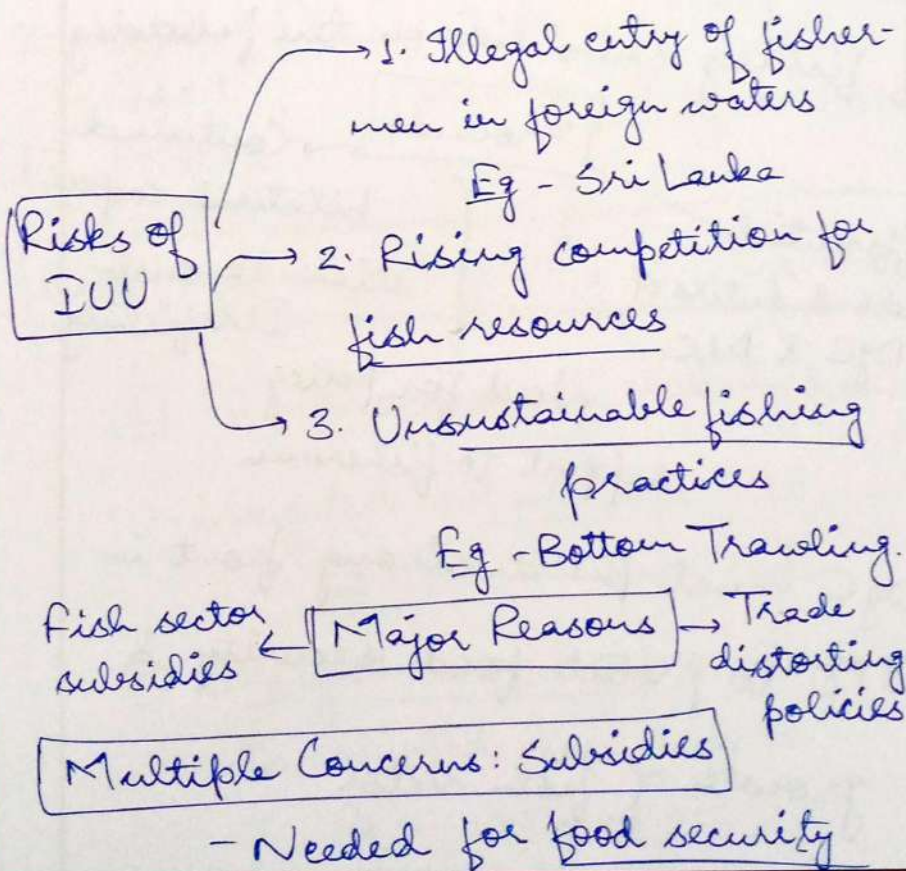 1. Illegal entry of fisher-
men in foreign waters
Eg - Sri Lanka
Risks of
IUU
2. Rising competition for
fish resources
3. Unsustainable fishing
practices
Eg - Bottom Trawling.
Fish sector
subsidies
Major Reasons
Trade
distorting
policies
Multiple Concerns: Subsidies
- Needed for food security